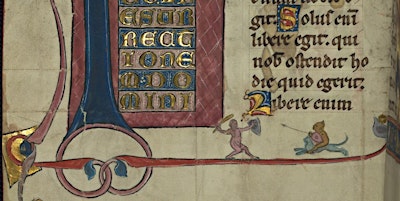 ESUR
RECT
IONE
MDO
MINI
git: Solus enī
libere egit: qui
nob ostendit ho
die quid egerit:
Libere enim